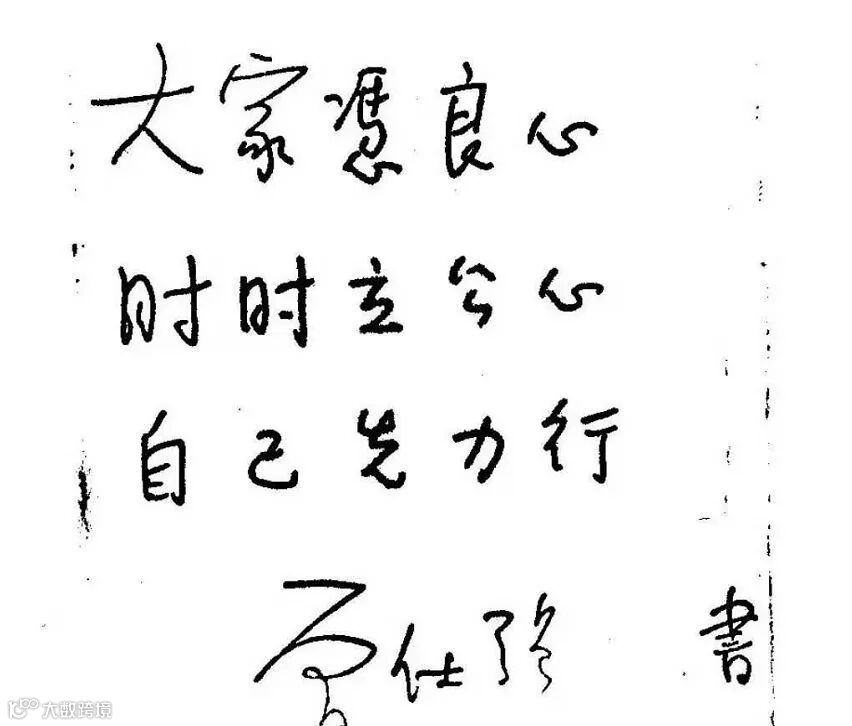 大家憑良心
时时立公心
自己先力行
曾仕强 書
大数跨境